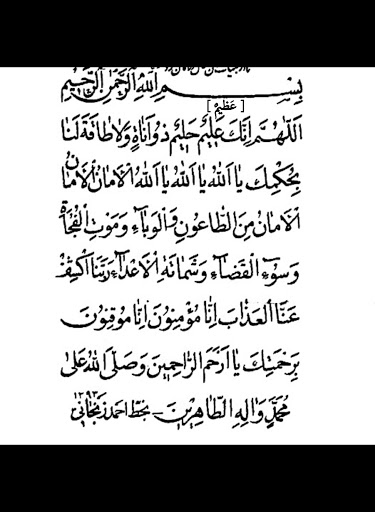 بِسْمِ اللهِ الرَّحْمٰنِ الرَّحِيمِ
[عَظِيمٌ]
اَللّٰهُمَّ اِنَّكَ عَلِيمٌ حَلِيمٌ ذُو اَنَاةٍ وَلَا طَاقَةَ لَنَا
بِحُكْمِكَ يَا اَللهُ يَا اَللهُ يَا اَللهُ اَلْاَمَانُ اَلْاَمَانُ
اَلْاَمَانُ مِنَ الطَّاعُونِ وَالْوَبَاءِ وَمَوْتِ الْفُجْأَةِ
وَسُوءِ الْقَضَاءِ وَشَمَاتَةِ الْاَعْدَاءِ رَبَّنَا اكْشِفْ
عَنَّا الْعَذَابَ اِنَّا مُؤْمِنُونَ اِنَّا مُوقِنُونَ
بِرَحْمَتِكَ يَا اَرْحَمَ الرَّاحِمِينَ وَصَلَّى اللهُ عَلٰى
مُحَمَّدٍ وَاٰلِهِ الطَّاهِرِينَ - بخط احمد زنجانى